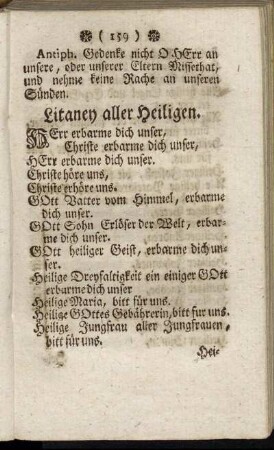 ❋ ( 159 ) ❋
Antiph. Gedenke nicht O HErr an
unsere, oder unserer Eltern Missethat,
und nehme keine Rache an unseren
Sünden.
Litaney aller Heiligen.
HErr erbarme dich unser,
Christe erbarme dich unser,
HErr erbarme dich unser.
Christe höre uns,
Christe erhöre uns.
GOtt Vatter vom Himmel, erbarme
dich unser.
GOtt Sohn Erlöser der Welt, erbar-
me dich unser.
GOtt heiliger Geist, erbarme dich un-
ser.
Heilige Dreyfaltigkeit ein einiger GOtt
erbarme dich unser
Heilige Maria, bitt für uns.
Heilige GOttes Gebährerin, bitt fur uns.
Heilige Jungfrau aller Jungfrauen,
bitt für uns.
Hei-